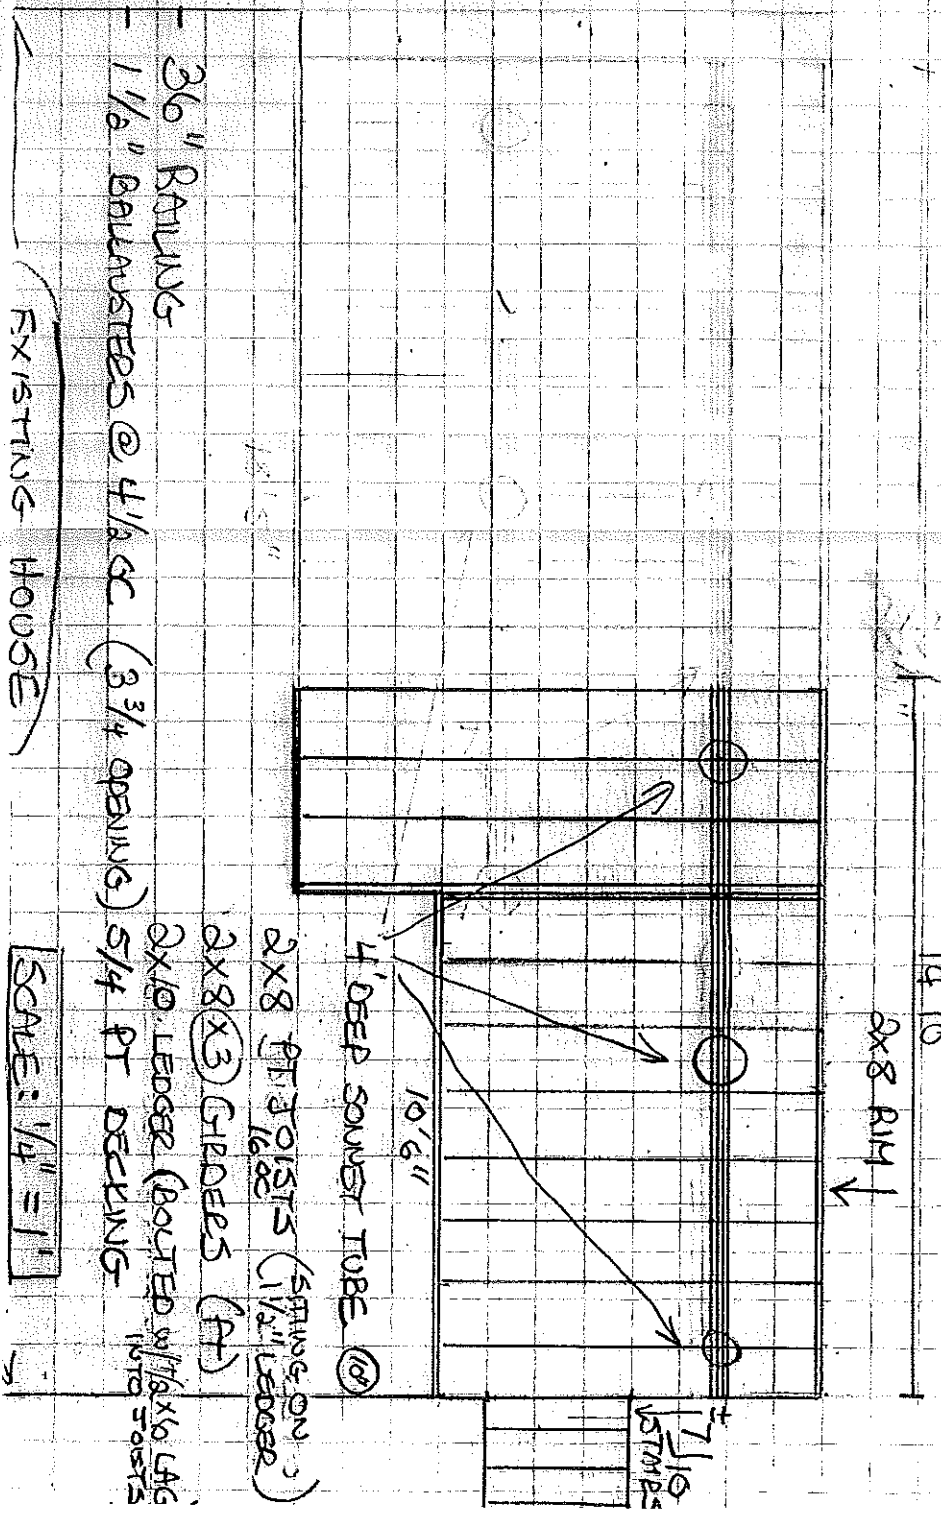 14 10
2x8 RIM
± 7/10
STAIRS
10'6"
4' DEEP SONNET TUBE 10"
2x8 PT JOISTS (SITTING ON
16 OC (1 1/2" LEDGER)
2x8x3 GIRDERS (PT)
2x10 LEDGER (BOLTED w/ 1/2x6 LAG
INTO JOISTS
5/4 PT DECKING
- 36" RAILING
- 1 1/2" BALLAUSTERS @ 4 1/2 OC (3 3/4 OPENING)
EXISTING HOUSE
SCALE: 1/4" = 1'